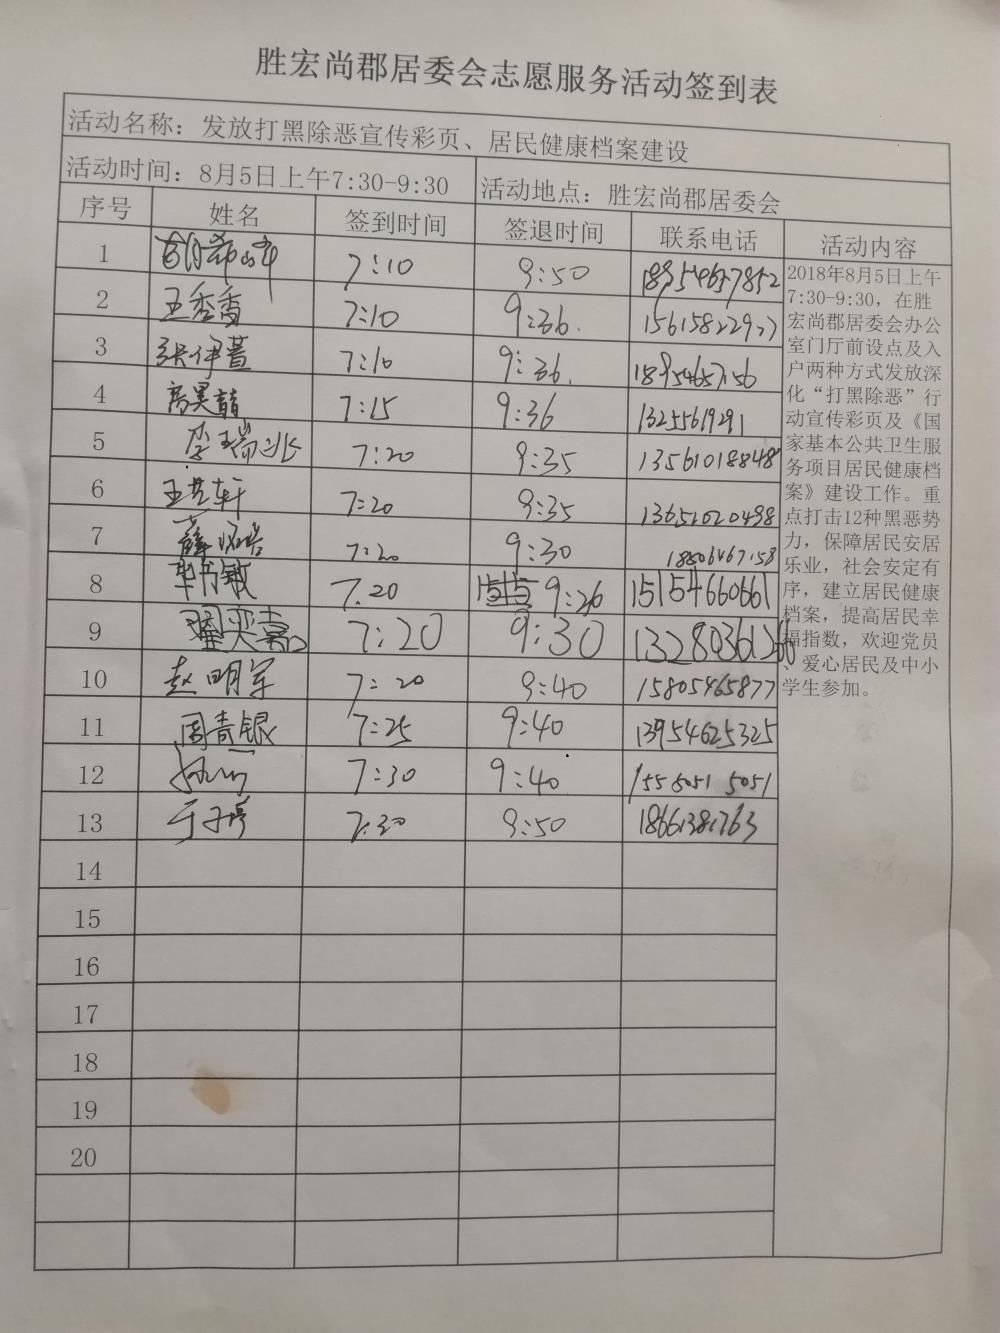 胜宏尚郡居委会志愿服务活动签到表
活动名称：发放打黑除恶宣传彩页、居民健康档案建设
活动时间：8月5日上午7:30-9:30 活动地点：胜宏尚郡居委会
序号 姓名 签到时间 签退时间 联系电话 活动内容
1 7:10 9:50 18954657852
2 王秀香 7:10 9:36. 15615822977
3 张伊萱 7:10 9:36. 18954657156
4 高昊喆 7:15 9:36 13255619291
5 李瑞兆 7:20 9:35 13561018848
6 王艺轩 7:20 9:35
7 7:20 9:30 18806467158
8 毕书敏 7.20 9:26 15154660661
9 翟奕嘉 7:20 9:30
10 赵明军 7:20 9:40 15805465877
11 周青银 7:25 9:40 13954625325
12 7:30 9:40 15580515051
13 于子婷 7:30 9:50 18661381763
14
15
16
17
18
19
20
2018年8月5日上午
7:30-9:30，在胜
宏尚郡居委会办公
室门厅前设点及入
户两种方式发放深
化“打黑除恶”行
动宣传彩页及《国
家基本公共卫生服
务项目居民健康档
案》建设工作。重
点打击12种黑恶势
力，保障居民安居
乐业，社会安定有
序，建立居民健康
档案，提高居民幸
福指数，欢迎党员
、爱心居民及中小
学生参加。